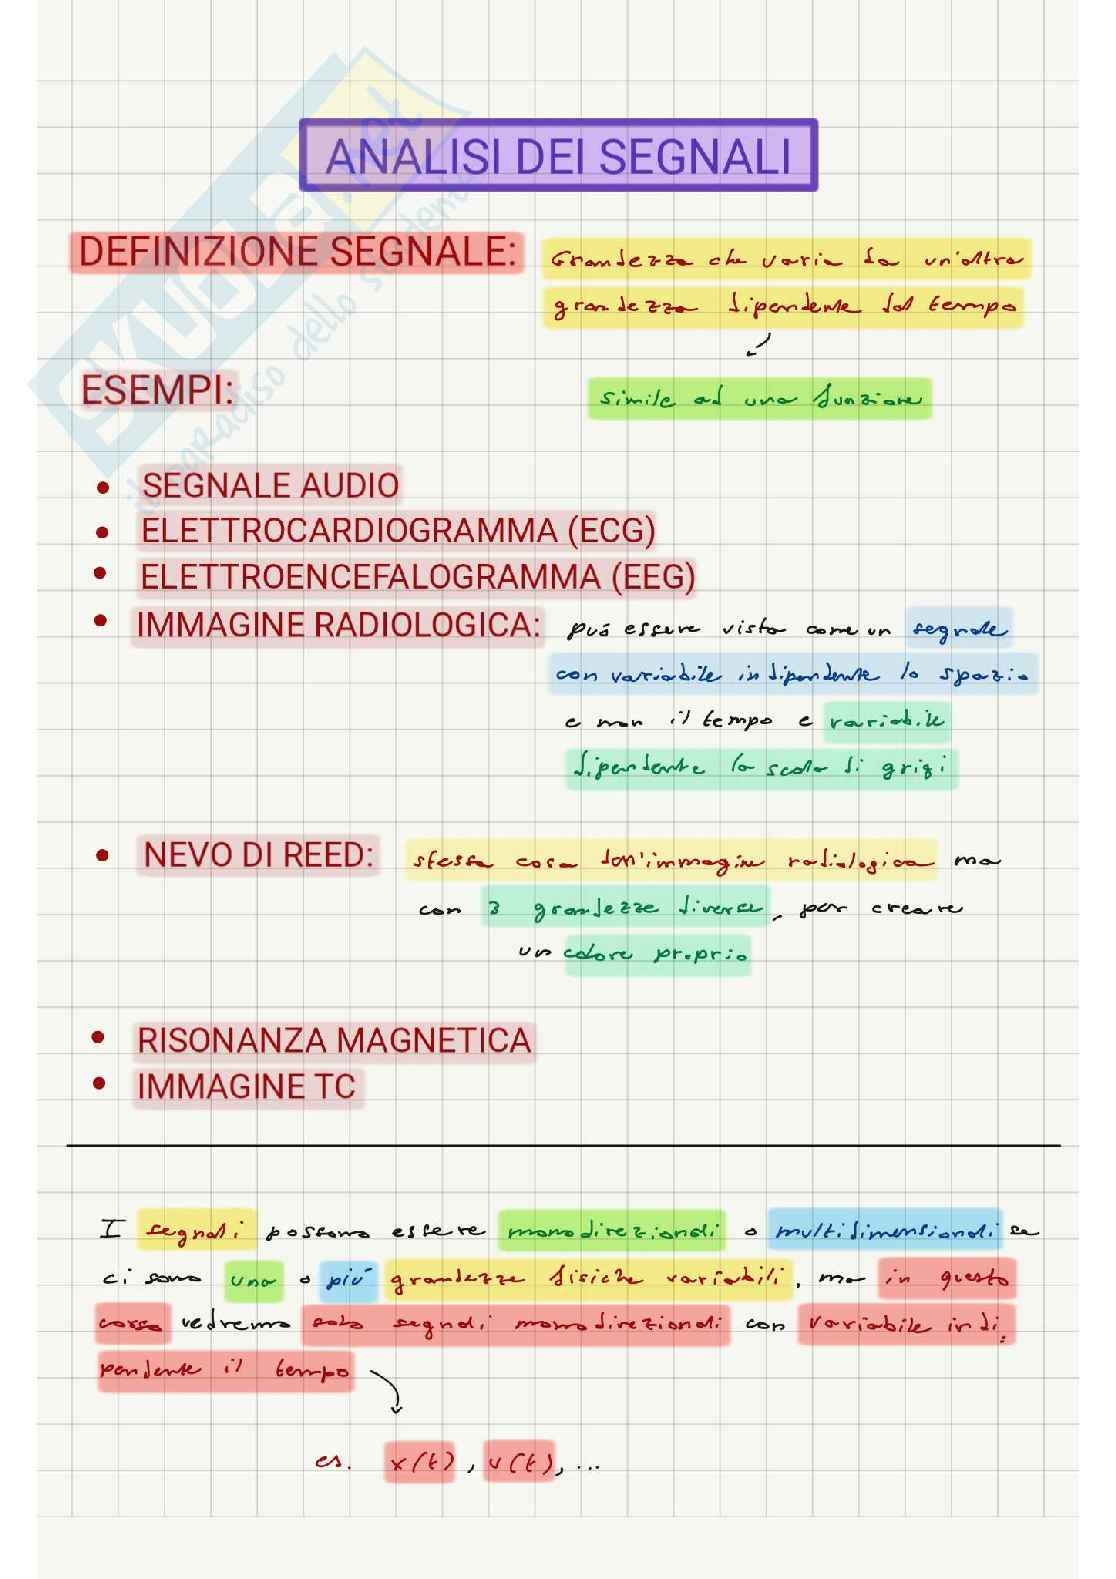 ANALISI DEI SEGNALI
DEFINIZIONE SEGNALE: Grandezza che varia da un'altra
grandezza dipendente dal tempo
ESEMPI: simile ad una funzione
• SEGNALE AUDIO
• ELETTROCARDIOGRAMMA (ECG)
• ELETTROENCEFALOGRAMMA (EEG)
• IMMAGINE RADIOLOGICA: può essere vista come un segnale
con variabile indipendente lo spazio
e non il tempo e variabile
dipendente la scala di grigi
• NEVO DI REED: stessa cosa dell'immagine radiologica ma
con 3 grandezze diverse, per creare
un colore proprio
• RISONANZA MAGNETICA
• IMMAGINE TC
I segnali possono essere monodirezionali o multidimensionali se
ci sono una o più grandezze fisiche variabili, ma in questo
corso vedremo solo segnali monodirezionali con variabile indi
pendente il tempo
es. x(t), v(t), ...
SKUOLA.net
il paradiso dello studente